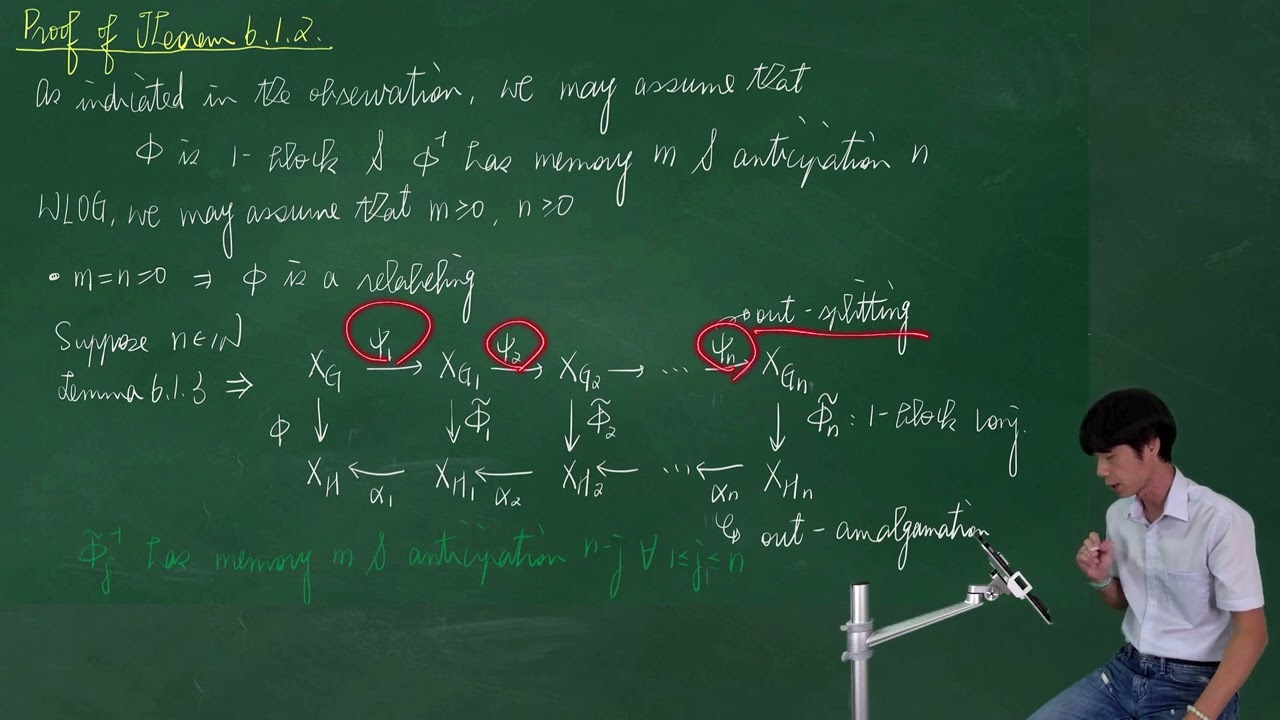 Proof of Theorem 6.1.2.
As indicated in the observation, we may assume that
Φ is 1-block & Φ⁻¹ has memory m & anticipation n
WLOG, we may assume that m≥0, n≥0
• m=n=0 ⇒ Φ is a relabeling
Suppose n∈ℕ
Lemma 6.1.3 ⇒
→ out-splitting
ψ₁ ψ₂ ψₙ
X_G → X_G₁ → X_G₂ → ... → X_Gₙ
Φ ↓ ↓ Φ̃₁ ↓ Φ̃₂ ↓ Φ̃ₙ : 1-block conj.
X_H ← X_H₁ ← X_H₂ ← ... ← X_Hₙ
α₁ α₂ αₙ
↳ out-amalgamation
Φ̃ⱼ⁻¹ has memory m & anticipation n-j ∀ 1≤j≤n